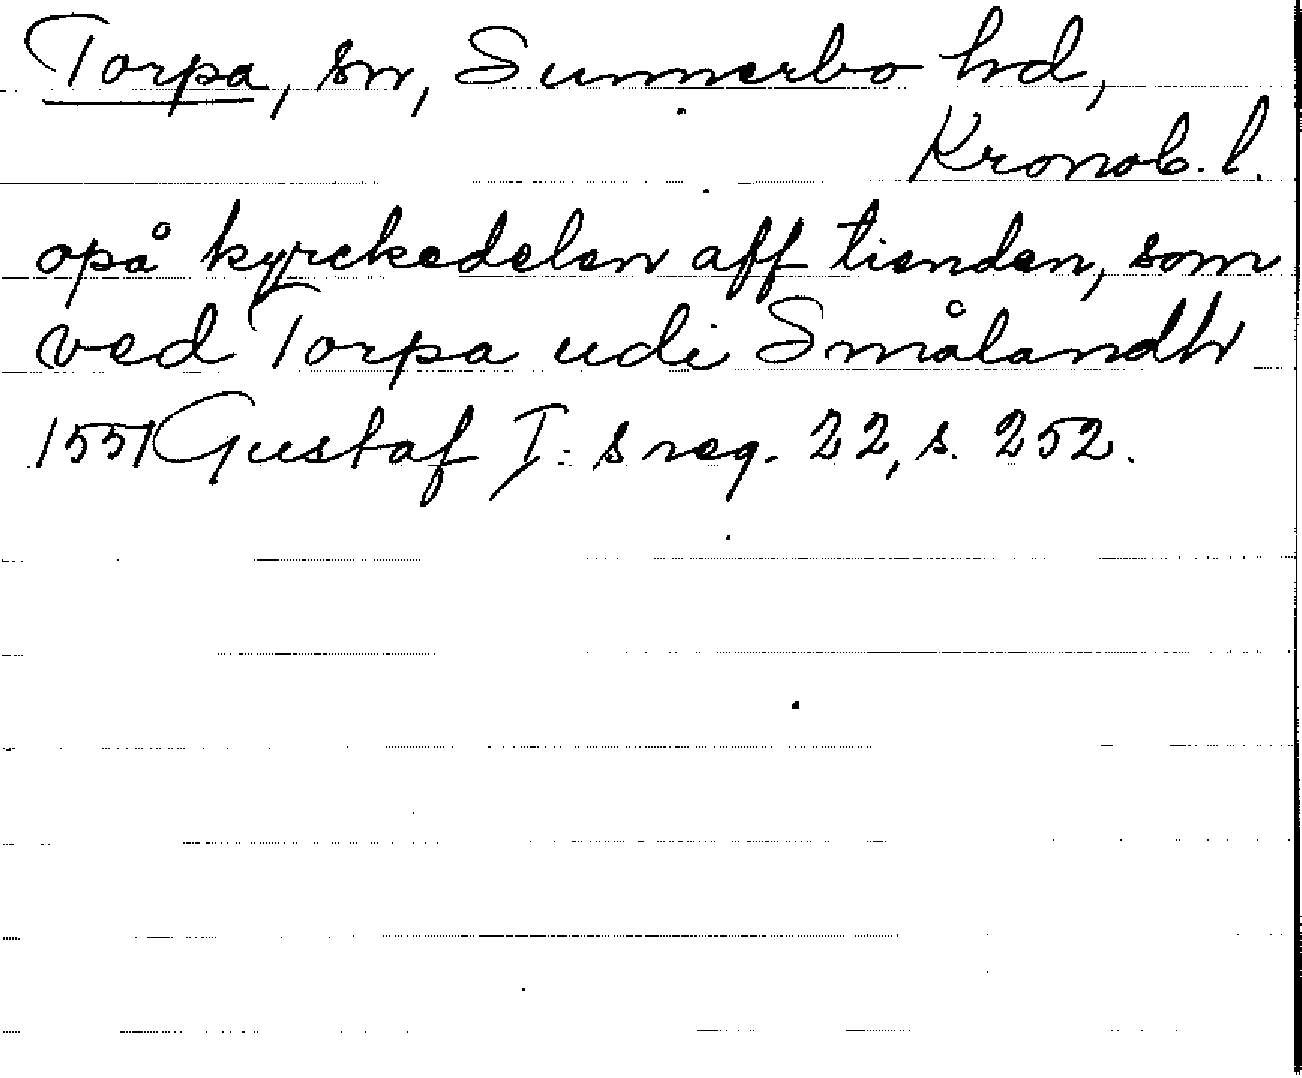 Torpa, sn, Sunnerbo hd,
Kronob. l.
opå kyrckedelen aff tienden, som
ved Torpa udi Smålandh
1551 Gustaf I: s reg. 22, s. 252.